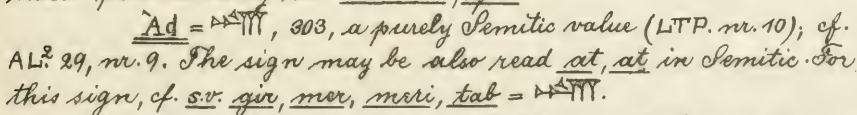 Ad = 𒄈, 303, a purely Semitic value (LTP. nr. 10); cf.
AL.² 29, nr. 9. The sign may be also read at, at in Semitic. For
this sign, cf. s.v. gir, mer, meri, tab = 𒄈.